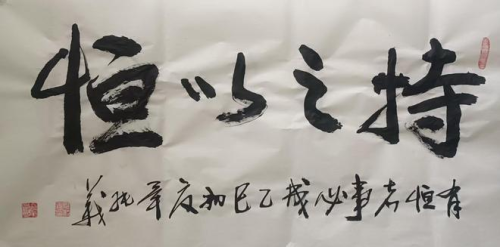 持之以恒
有恒者事必成乙巳初夏